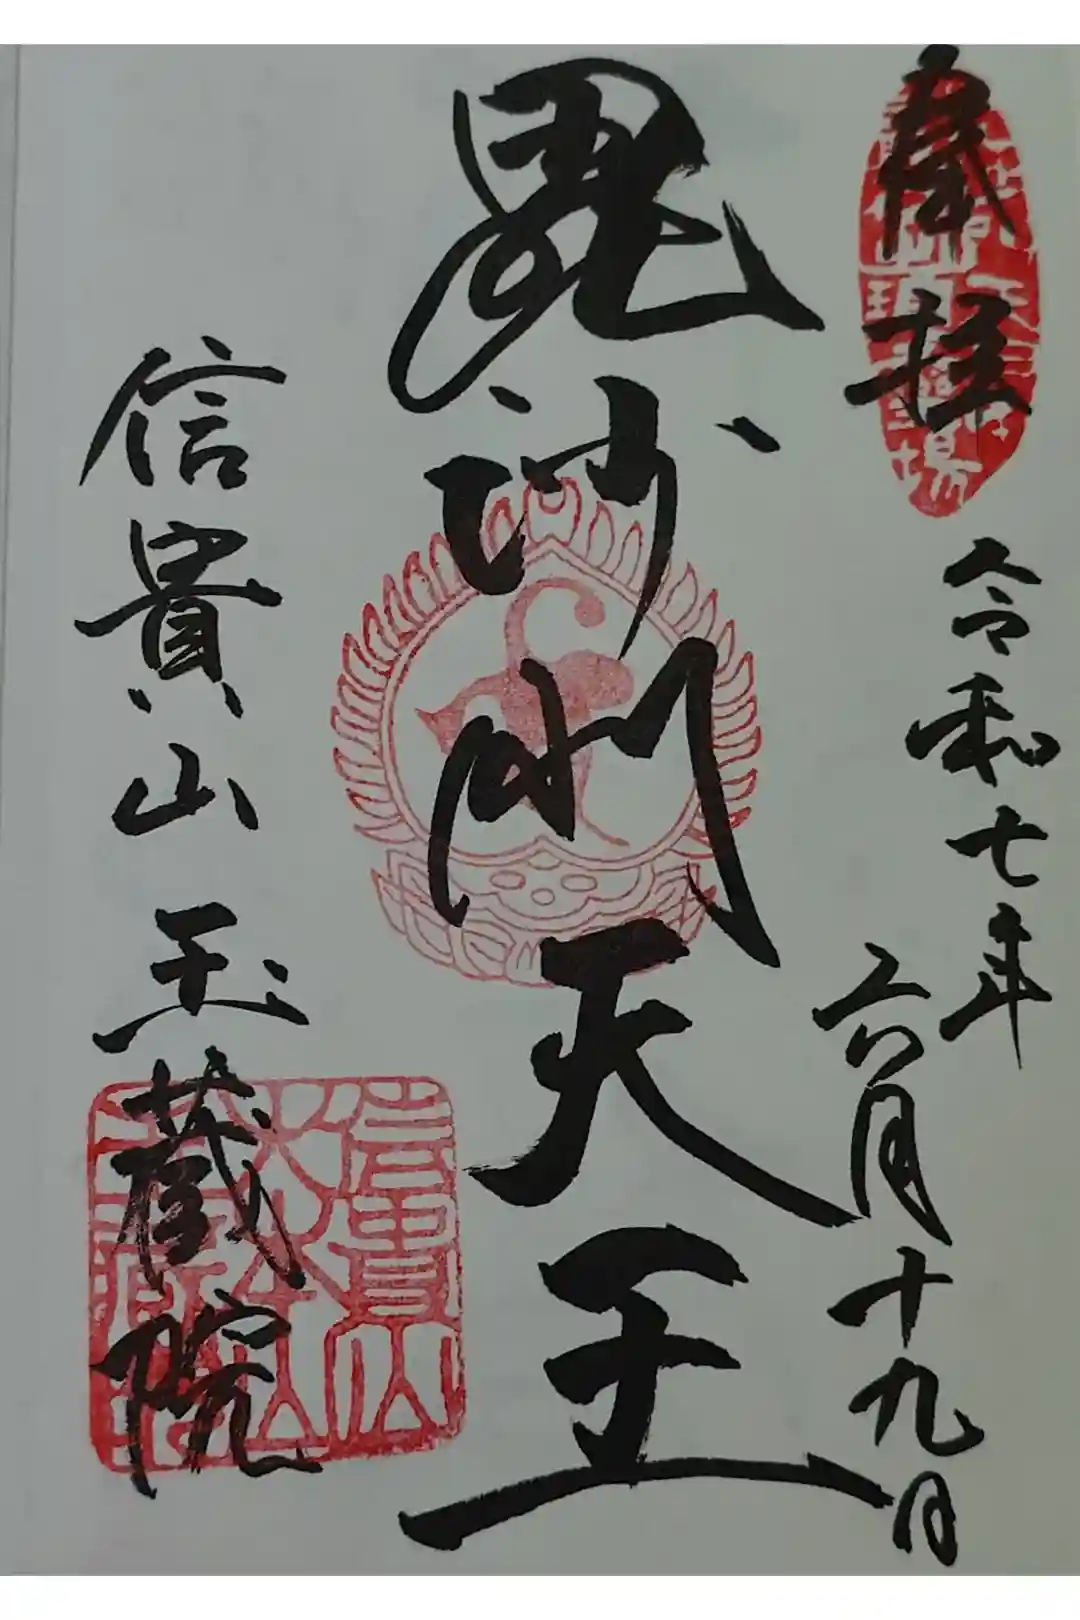 奉拝
令和七年
六月十九日
毘沙門天王
信貴山 玉蔵院